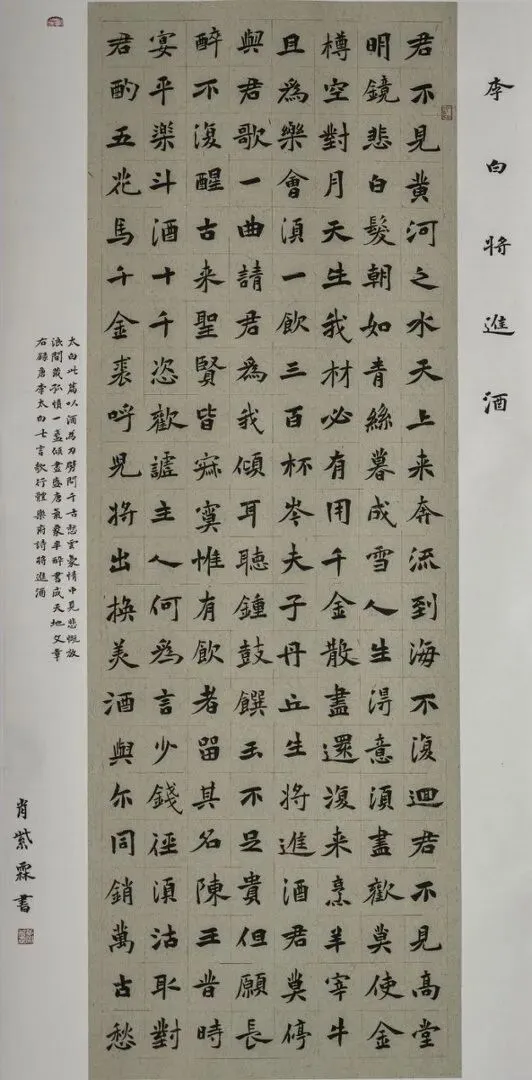 李白將進酒
君不見黄河之水天上来奔流到海不復迴君不見高堂
明鏡悲白髮朝如青絲暮成雪人生得意須盡歡莫使金
樽空對月天生我材必有用千金散盡還復来烹羊宰牛
且為樂會須一飲三百杯岑夫子丹丘生將進酒君莫停
與君歌一曲請君為我傾耳聽鍾鼓饌玉不足貴但願長
醉不復醒古来聖賢皆寂寞惟有飲者留其名陳王昔時
宴平樂斗酒十千恣歡謔主人何為言少錢徑須沽取對
君酌五花馬千金裘呼兒將出換美酒與尔同銷萬古愁
太白此篇以酒為刃劈開千古愁雲豪情中見悲慨放
浪間藏孤憤一盞傾盡盛唐氣象半醉書成天地文章
右録唐李太白七言歌行體樂府詩將進酒
肖紫霖書